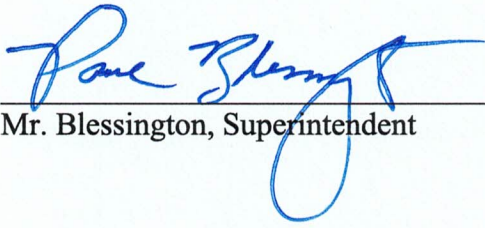 Paul Blessingt
Mr. Blessington, Superintendent